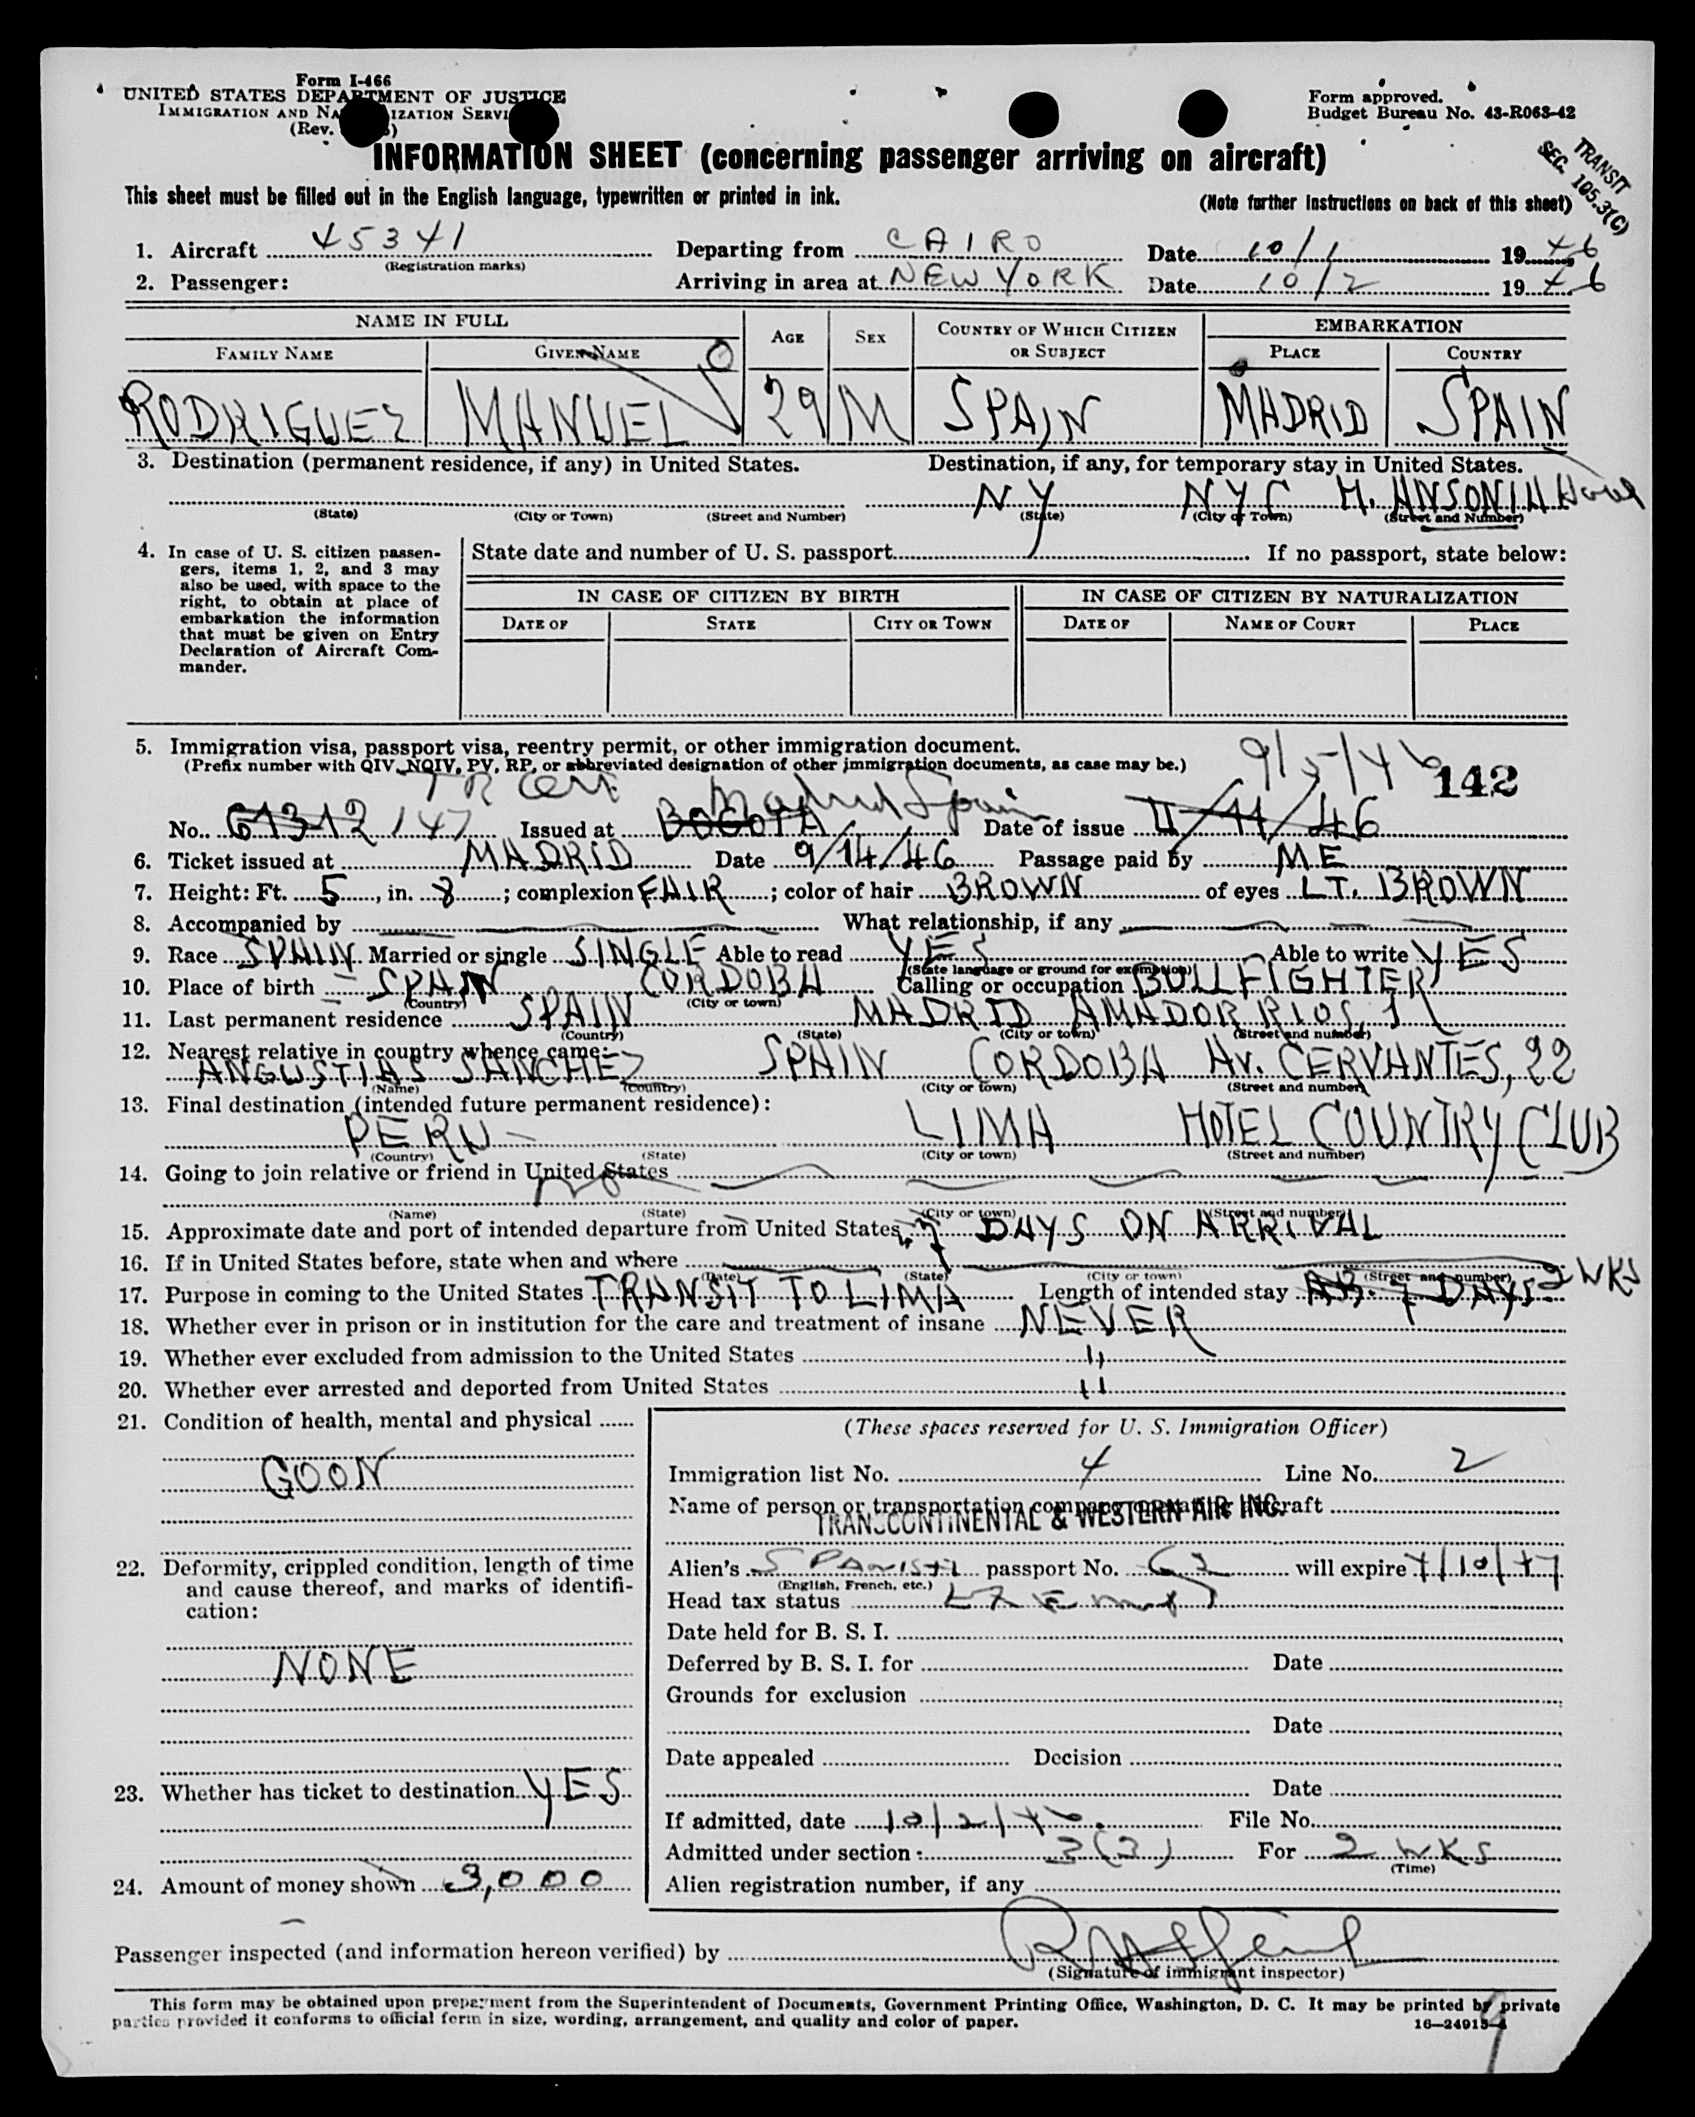 Form I-466
UNITED STATES DEPARTMENT OF JUSTICE
IMMIGRATION AND NATURALIZATION SERVICE
(Rev.
Form approved.
Budget Bureau No. 43-R063-42
TRANSIT
SEC. 105.3(C)
INFORMATION SHEET (concerning passenger arriving on aircraft)
This sheet must be filled out in the English language, typewritten or printed in ink. (Note further instructions on back of this sheet)
1. Aircraft 45341 Departing from CAIRO Date 10/1 1946
(Registration marks)
2. Passenger: Arriving in area at NEW YORK Date 10/2 1946
NAME IN FULL AGE SEX COUNTRY OF WHICH CITIZEN OR SUBJECT EMBARKATION
FAMILY NAME GIVEN NAME PLACE COUNTRY
RODRIGUEZ MANUEL 29 M SPAIN MADRID SPAIN
3. Destination (permanent residence, if any) in United States. Destination, if any, for temporary stay in United States.
NY NYC H. ANSONIA Hotel
(State) (City or Town) (Street and Number) (State) (City or Town) (Street and Number)
4. In case of U. S. citizen passen-
gers, items 1, 2, and 3 may
also be used, with space to the
right, to obtain at place of
embarkation the information
that must be given on Entry
Declaration of Aircraft Com-
mander.
State date and number of U. S. passport If no passport, state below:
IN CASE OF CITIZEN BY BIRTH IN CASE OF CITIZEN BY NATURALIZATION
DATE OF STATE CITY OR TOWN DATE OF NAME OF COURT PLACE
5. Immigration visa, passport visa, reentry permit, or other immigration document.
(Prefix number with QIV, NQIV, PV, RP, or abbreviated designation of other immigration documents, as case may be.)
TR Cert Madrid Spain 9/5/46 142
No. 61312/47 Issued at BOGOTA Date of issue II/11/46
6. Ticket issued at MADRID Date 9/14/46 Passage paid by ME
7. Height: Ft. 5, in. 8; complexion FAIR; color of hair BROWN of eyes LT. BROWN
8. Accompanied by What relationship, if any
9. Race SPAIN Married or single SINGLE Able to read YES Able to write YES
(State language or ground for exemption)
10. Place of birth SPAIN CORDOBA Calling or occupation BULLFIGHTER
(Country) (City or town)
11. Last permanent residence SPAIN MADRID AMADOR RIOS, 1
(Country) (State) (City or town) (Street and number)
12. Nearest relative in country whence came:
ANGUSTIAS SANCHEZ SPAIN CORDOBA Av. CERVANTES, 22
(Name) (Country) (City or town) (Street and number)
13. Final destination (intended future permanent residence):
PERU LIMA HOTEL COUNTRY CLUB
(Country) (State) (City or town) (Street and number)
14. Going to join relative or friend in United States
no
(Name) (State) (City or town) (Street and number)
15. Approximate date and port of intended departure from United States 7 DAYS ON ARRIVAL
16. If in United States before, state when and where
(Date) (State) (City or town) (Street and number)
17. Purpose in coming to the United States TRANSIT TO LIMA Length of intended stay AB. 7 DAYS 2 WKS
18. Whether ever in prison or in institution for the care and treatment of insane NEVER
19. Whether ever excluded from admission to the United States "
20. Whether ever arrested and deported from United States "
21. Condition of health, mental and physical
GOON
22. Deformity, crippled condition, length of time
and cause thereof, and marks of identifi-
cation:
NONE
23. Whether has ticket to destination YES
24. Amount of money shown 3,000
(These spaces reserved for U. S. Immigration Officer)
Immigration list No. 4 Line No. 2
Name of person or transportation company operating aircraft
TRANSCONTINENTAL & WESTERN AIR INC.
Alien's SPANISH passport No. 62 will expire 4/10/47
(English, French, etc.)
Head tax status Exempt
Date held for B. S. I.
Deferred by B. S. I. for Date
Grounds for exclusion
Date
Date appealed Decision
Date
If admitted, date 10/2/46. File No.
Admitted under section 3(3) For 2 WKS
(Time)
Alien registration number, if any
Passenger inspected (and information hereon verified) by
(Signature of immigrant inspector)
This form may be obtained upon prepayment from the Superintendent of Documents, Government Printing Office, Washington, D. C. It may be printed by private
parties provided it conforms to official form in size, wording, arrangement, and quality and color of paper. 16—24915-1